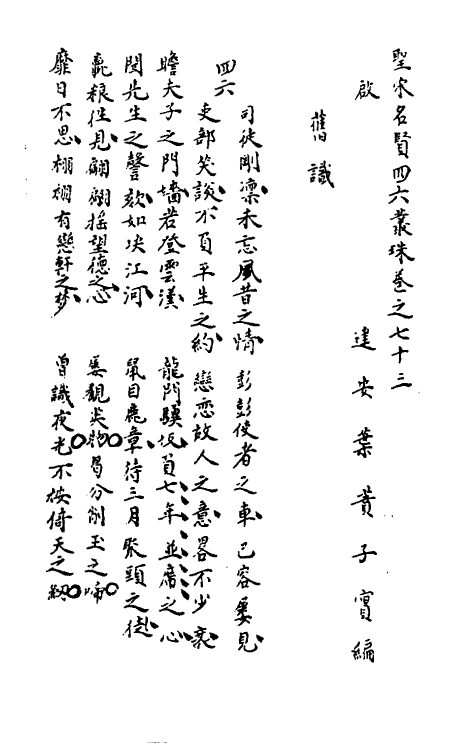 聖宋名賢四六叢珠卷之七十三
啟 建安葉蕡子實編
舊識
四六
司徒剛凜未忘風昔之情 彭彭使者之車已容屢見
吏部笑談不負平生之約 戀戀故人之意畧不少衰
瞻夫子之門墻若登雲漢 龍門驥坂負七年並席之心
聞先生之謦欬如决江河 鼠目麞章待三月聚頭之徒
麄粮性見翩翩摇望德之心 屡觀尖物曷分削玉之啼
靡日不思栩栩有戀軒之梦 曾識夜光不按倚天之釰